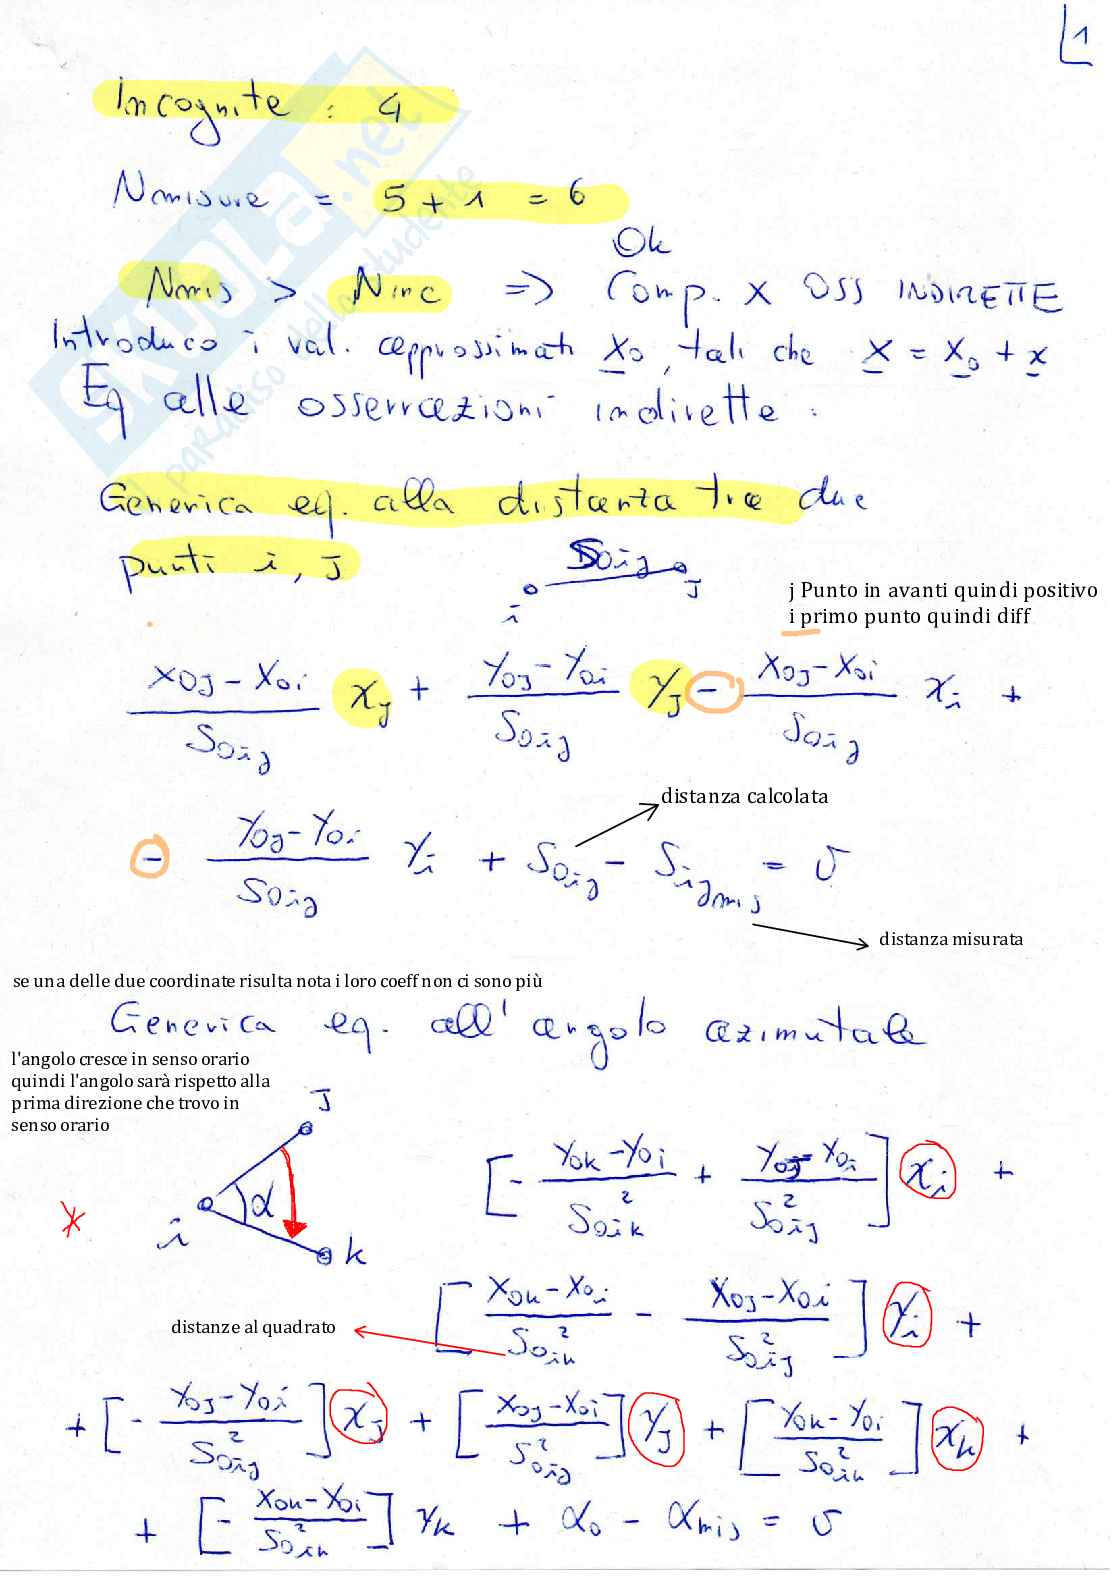 1
Incognite : 4
Nmisure = 5 + 1 = 6
Ok
Nmis > Ninc => Comp. x OSS INDIRETTE
Introduco i val. approssimati X0, tali che X = X0 + x
Eq alle osservazioni indirette :
Generica eq. alla distanza tra due
punti i, J
S0ij
i J
j Punto in avanti quindi positivo
i primo punto quindi diff
(X0J - X0i)/S0ij xj + (Y0J - Y0i)/S0ij yJ - (X0J - X0i)/S0ij xi +
distanza calcolata
- (Y0J - Y0i)/S0ij yi + S0ij - Sijmis = v
distanza misurata
se una delle due coordinate risulta nota i loro coeff non ci sono più
Generica eq. all'angolo azimutale
l'angolo cresce in senso orario
quindi l'angolo sarà rispetto alla
prima direzione che trovo in
senso orario
J
i α k
[- (Y0k - Y0i)/S0ik² + (Y0J - Y0i)/S0iJ²] xi +
[(X0k - X0i)/S0ik² - (X0J - X0i)/S0ij²] yi +
distanze al quadrato
+ [- (Y0J - Y0i)/S0ij²] xJ + [(X0J - X0i)/S0ij²] yJ + [(Y0k - Y0i)/S0ik²] xk +
+ [- (X0k - X0i)/S0ik²] yk + α0 - αmis = v
SKUOLA.net
il paradiso dello studente